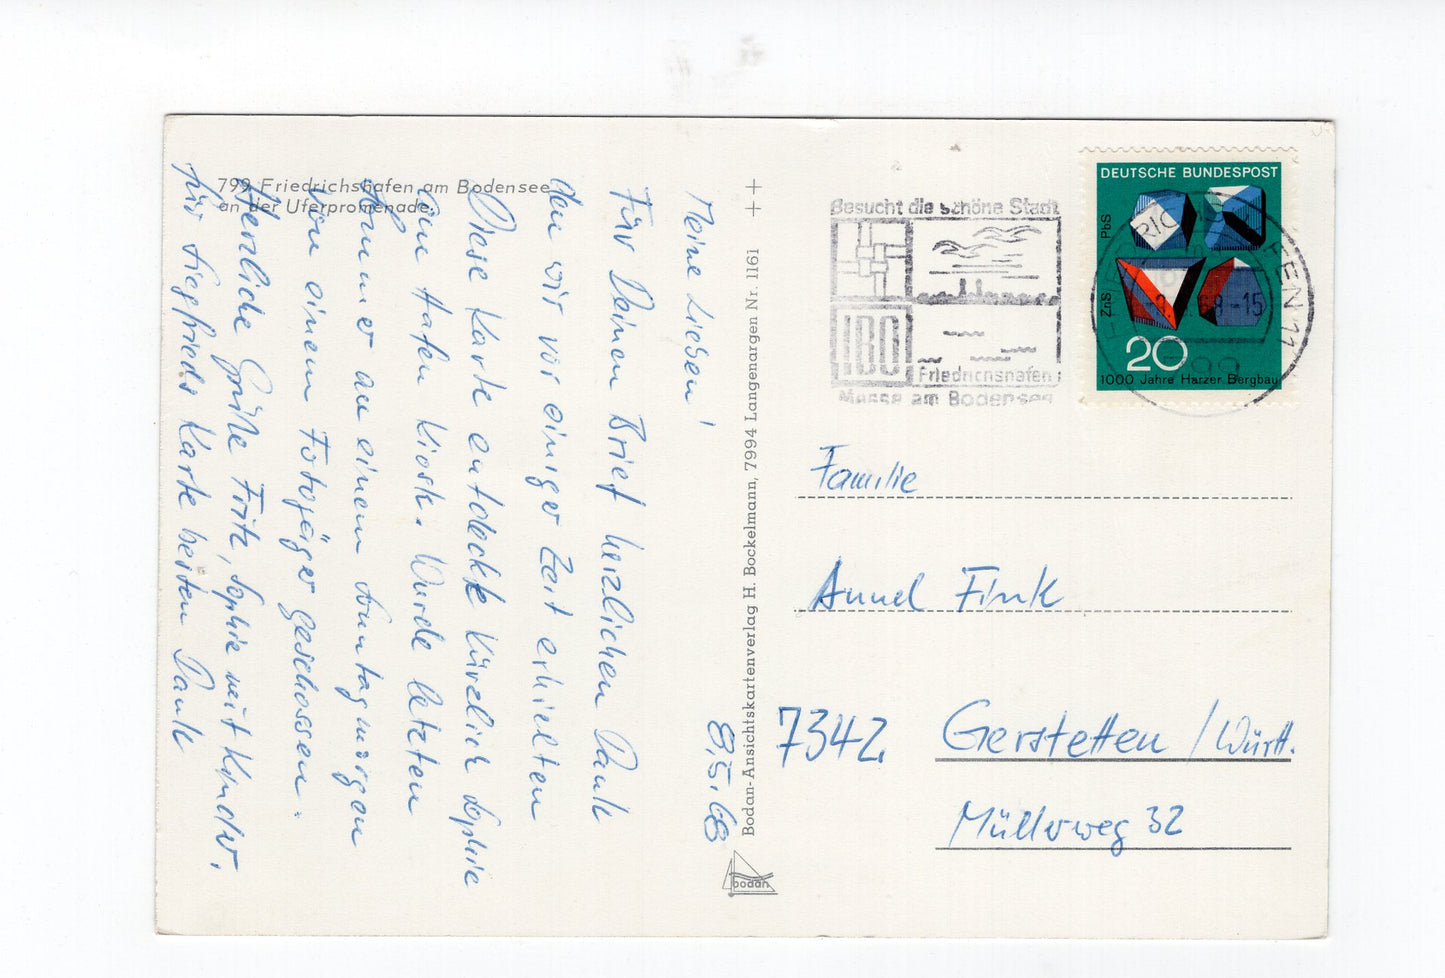 799 Friedrichshafen am Bodensee
an der Uferpromenade
8.5.68
Meine Lieben!
Für Deinen Brief herzlichen Dank
den wir vor einiger Zeit erhielten
Diese Karte entdeckte kürzlich Sophie
am Hafen Kiosk. Wurde letzten
Sommer an einem Sonntagmorgen
von einem Fotojäger geschossen.
Herzliche Grüße Fritz, Sophie mit Kinder.
für Siegfrieds Karte besten Dank
Bodan-Ansichtskartenverlag H. Bockelmann, 7994 Langenargen Nr. 1161
bodan
Besucht die schöne Stadt
IBO
Friedrichshafen
Messe am Bodensee
DEUTSCHE BUNDESPOST
PbS
ZnS
20
1000 Jahre Harzer Bergbau
68-15
Familie
Annel Fink
7342 Gerstetten / Württ.
Müllerweg 32